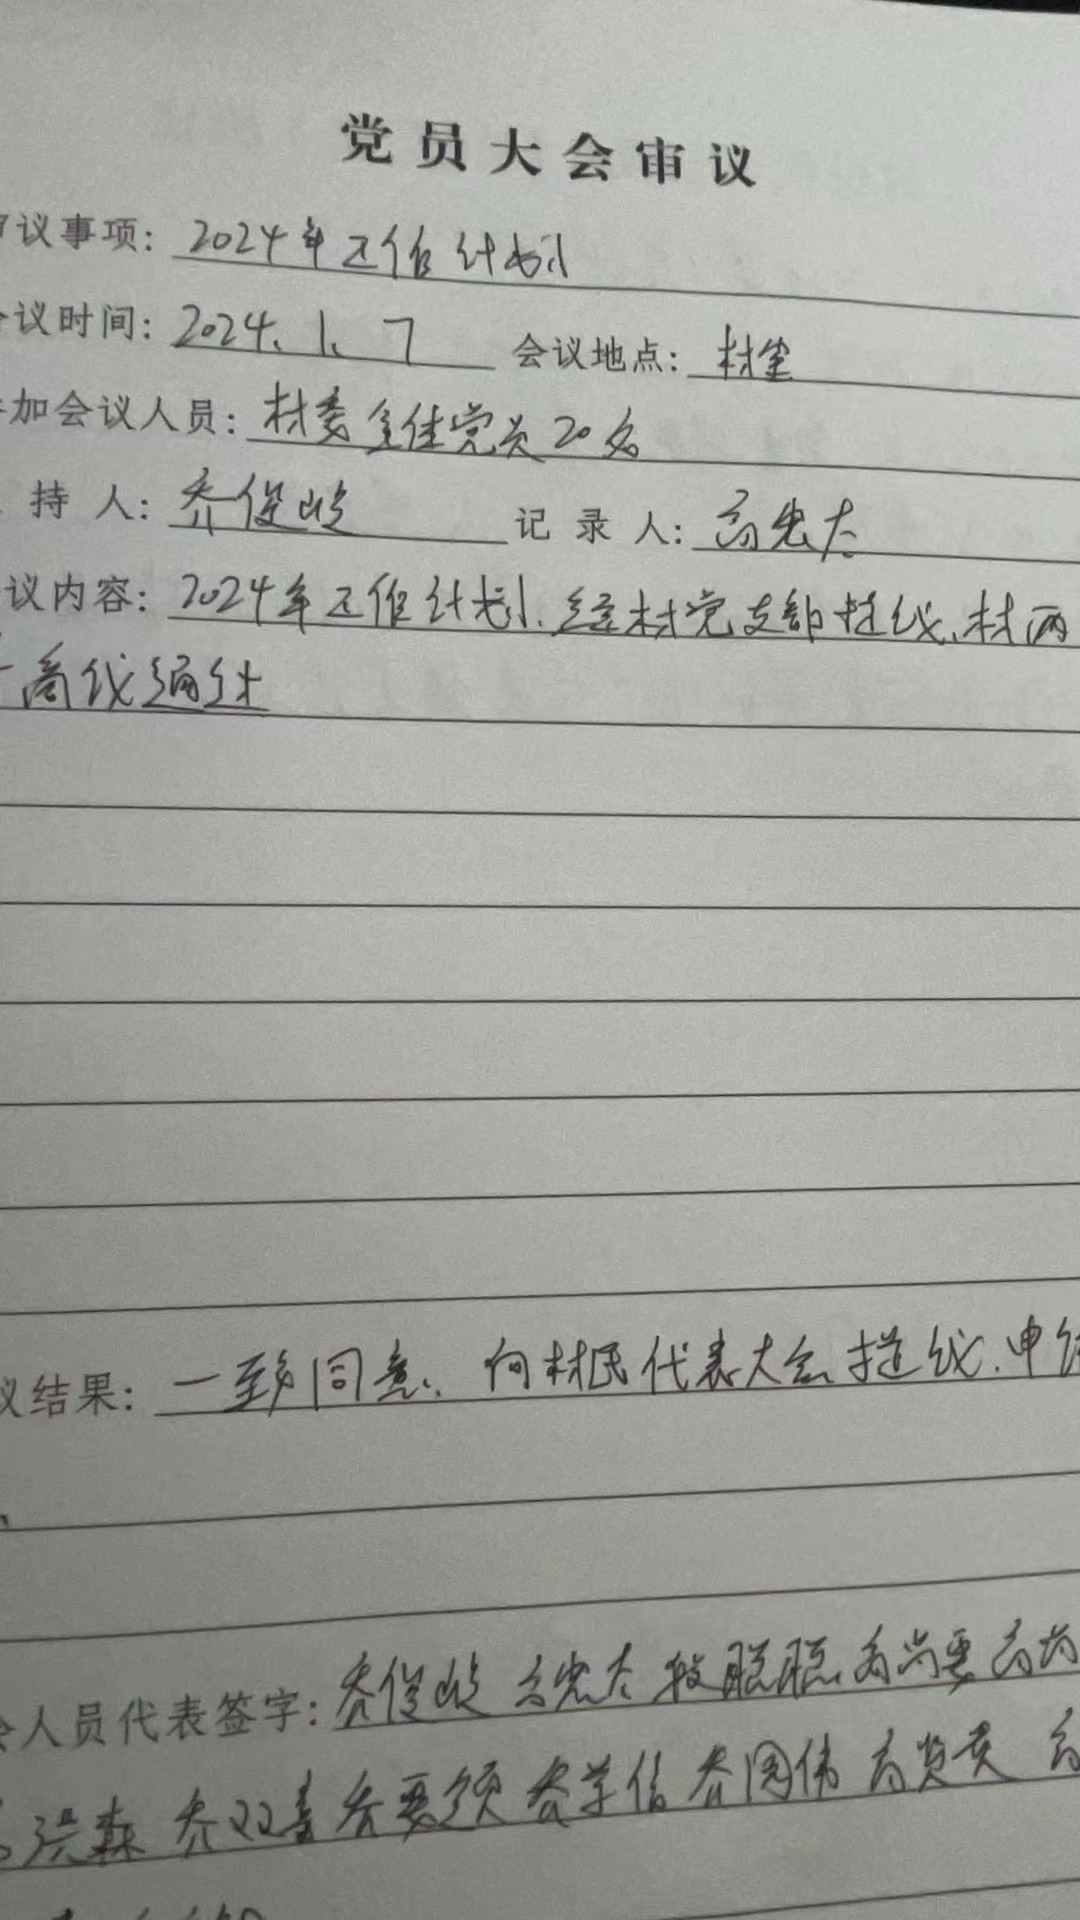 党员大会审议
审议事项：2024年工作计划
会议时间：2024.1.7 会议地点：村室
参加会议人员：村委全体党员20名
持人：乔俊岐 记录人：高忠太
议内容：2024年工作计划.经村党支部提议、村两
商议通过
议结果：一致同意.向村民代表大会提议.申
会人员代表签字：乔俊岐 高忠太 聪聪
洪森 乔双喜 乔要领 乔学信 乔国伟 高贤贵